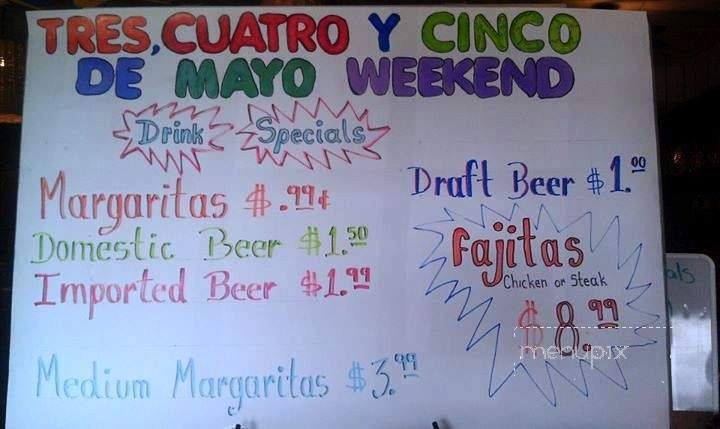 TRES, CUATRO Y CINCO
DE MAYO WEEKEND
Drink Specials
Margaritas $.99¢
Domestic Beer $1.50
Imported Beer $1.99
Medium Margaritas $3.99
Draft Beer $1.00
Fajitas
Chicken or Steak
$8.99
menupix
als